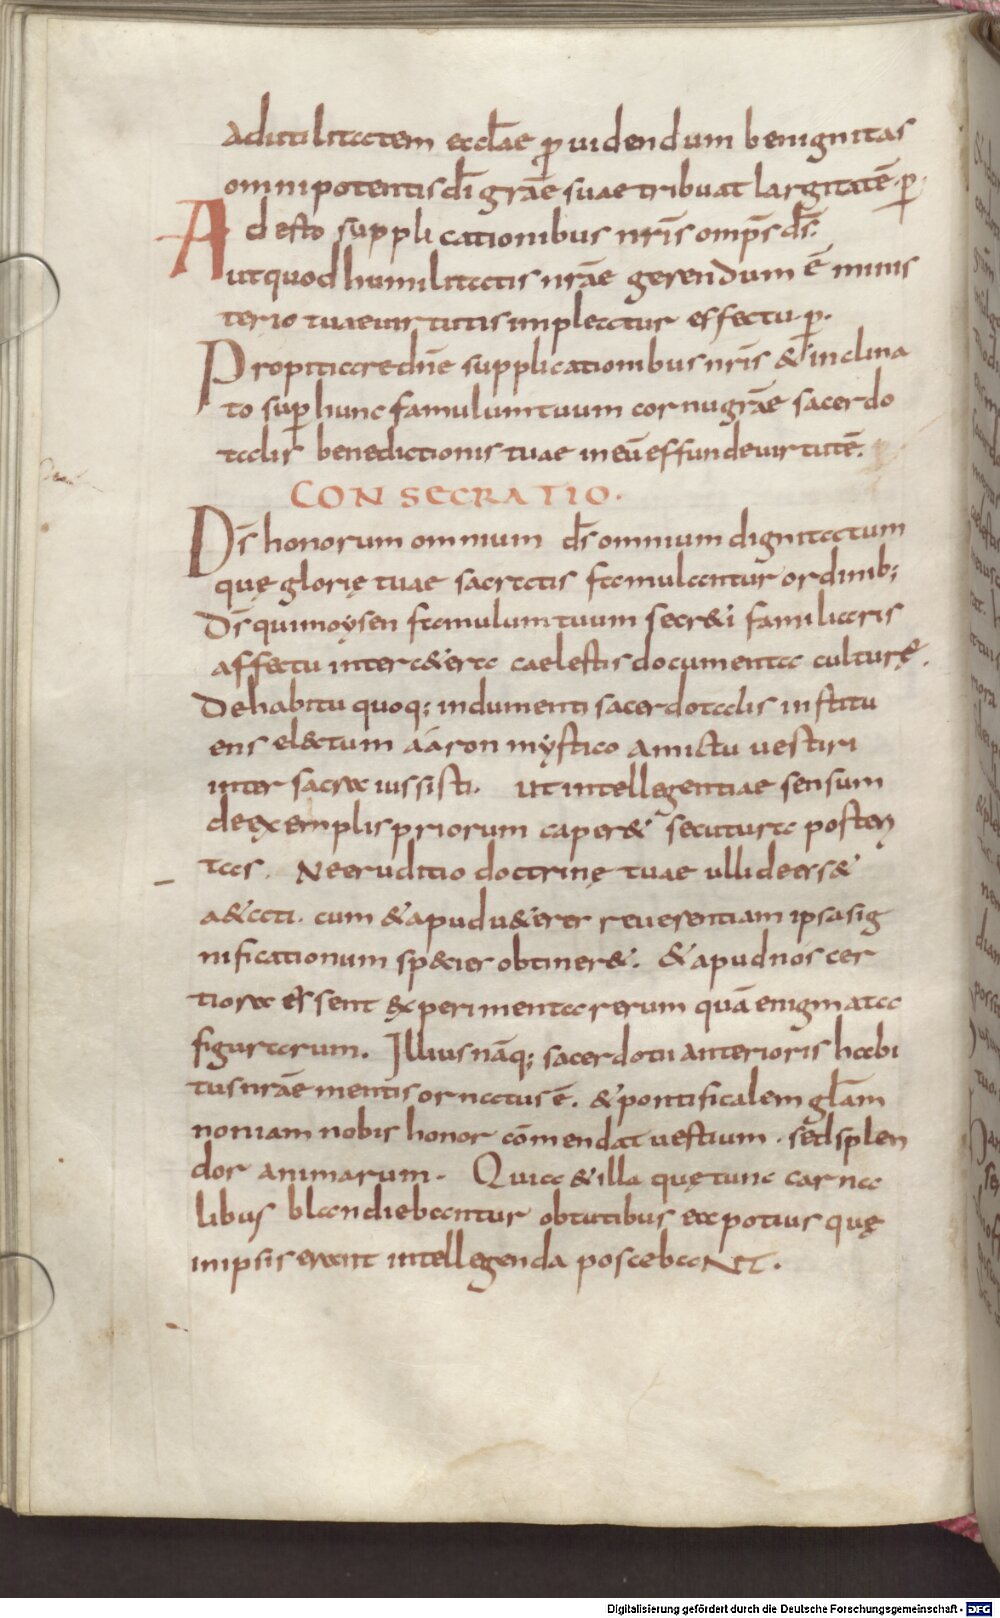 Adutilitatem eccl̄ae ꝓuidendum benignitas
omnipotentis dī gr̄ae suae tribuat largitatē. ꝑ.
Adesto supplicationibus nr̄is omp̄s d̄s.
utquod humilitatis nr̄ae gerendum ē minis
terio tuae uirtutis impleatur effectu. ꝑ.
Propitiare dn̄e supplicationibus nr̄is & inclina
to suꝑ hunc famulum tuum cornu gr̄ae sacerdo
talis benedictionis tuae in eū effunde uirtutē.
CONSECRATIO.
D̄s honorum omnium d̄s omnium dignitatum
quę glorię tuae sacratis famulantur ordinib;
D̄s qui moysen famulum tuum secr&i familiaris
affectu inter c&era caelestis documenta culturę.
De habitu quoq; indumenti sacerdotalis institu
ens el&ctum aaron mystico amictu uestiri
inter sacra iussisti. Ut intellegentiae sensum
de exemplis priorum caper& secutura posteri
tas. Ne eruditio doctrinę tuae ulli dees&
a&ati. cum & apud u&eres reuerentiam ipsa sig
nificationum species obtiner&. & apud nos cer
tiora essent experimenta rerum quā enigmata
figurarum. Illius nāq; sacerdotii anterioris habi
tus nr̄ae mentis ornatus ē. & pontificalem gl̄am
non iam nobis honor cōmendat uestium. sed splen
dor animarum. Quia & illa quę tunc carna
libus blandiebantur obtutibus ea potius quę
in ipsis erant intellegenda poscebant.
Digitalisierung gefördert durch die Deutsche Forschungsgemeinschaft - DFG